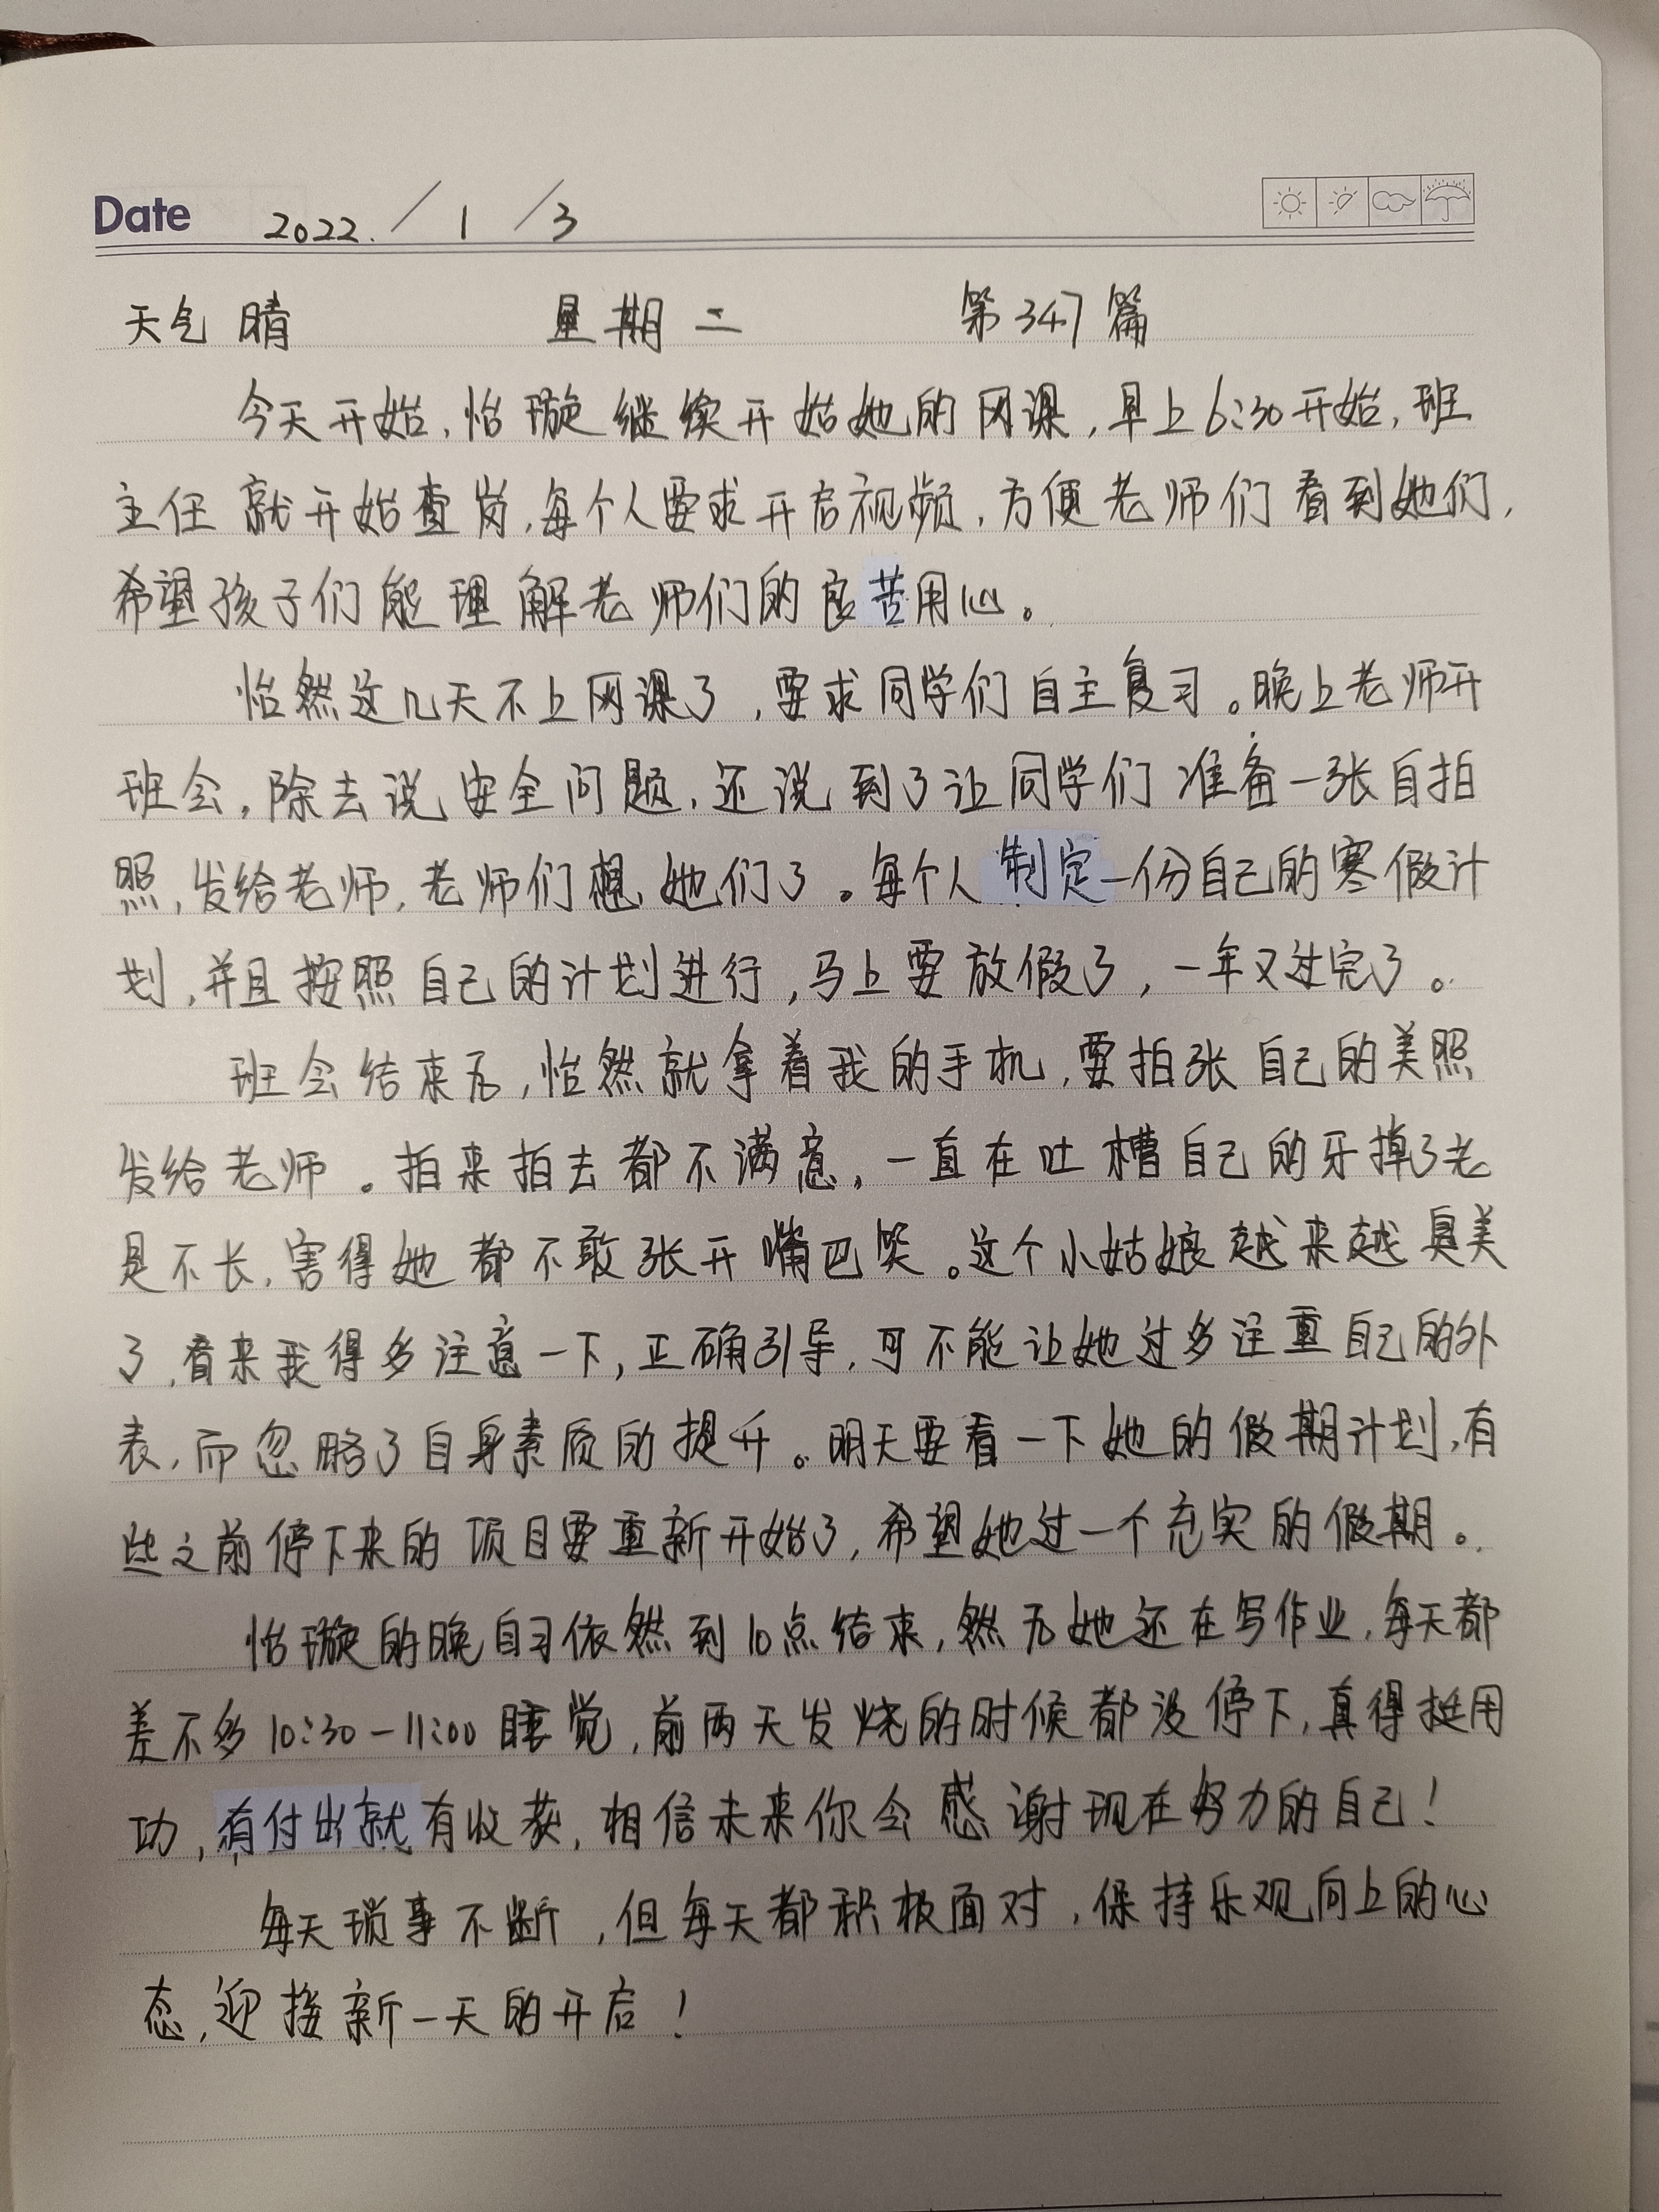 Date 2022. / 1 / 3
天气 晴 星期二 第347篇
今天开始,怡璇继续开始她的网课,早上6:30开始,班
主任就开始查岗,每个人要求开启视频,方便老师们看到她们,
希望孩子们能理解老师们的良苦用心。
怡然这几天不上网课了,要求同学们自主复习。晚上老师开
班会,除去说安全问题,还说到了让同学们准备一张自拍
照,发给老师,老师们想她们了。每个人制定一份自己的寒假计
划,并且按照自己的计划进行,马上要放假了,一年又过完了。
班会结束后,怡然就拿着我的手机,要拍张自己的美照
发给老师。拍来拍去都不满意,一直在吐槽自己的牙掉了老
是不长,害得她都不敢张开嘴巴笑。这个小姑娘越来越臭美
了,看来我得多注意一下,正确引导,可不能让她过多注重自己的外
表,而忽略了自身素质的提升。明天要看一下她的假期计划,有
些之前停下来的项目要重新开始了,希望她过一个充实的假期。
怡璇的晚自习依然到10点结束,然后她还在写作业,每天都
差不多10:30-11:00睡觉,前两天发烧的时候都没停下,真得挺用
功,有付出就有收获,相信未来你会感谢现在努力的自己!
每天琐事不断,但每天都积极面对,保持乐观向上的心
态,迎接新一天的开启!